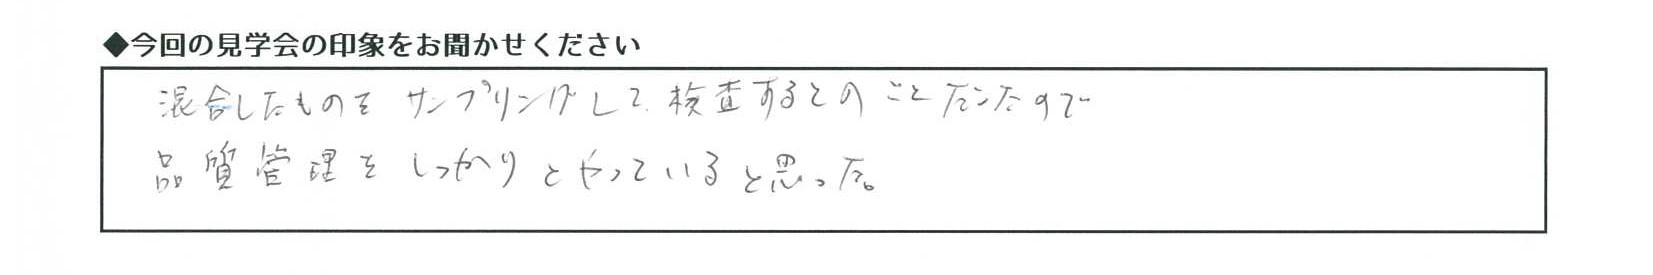 ◆今回の見学会の印象をお聞かせください
混合したものをサンプリングして、検査するとのことだったので
品質管理をしっかりとやっていると思った。